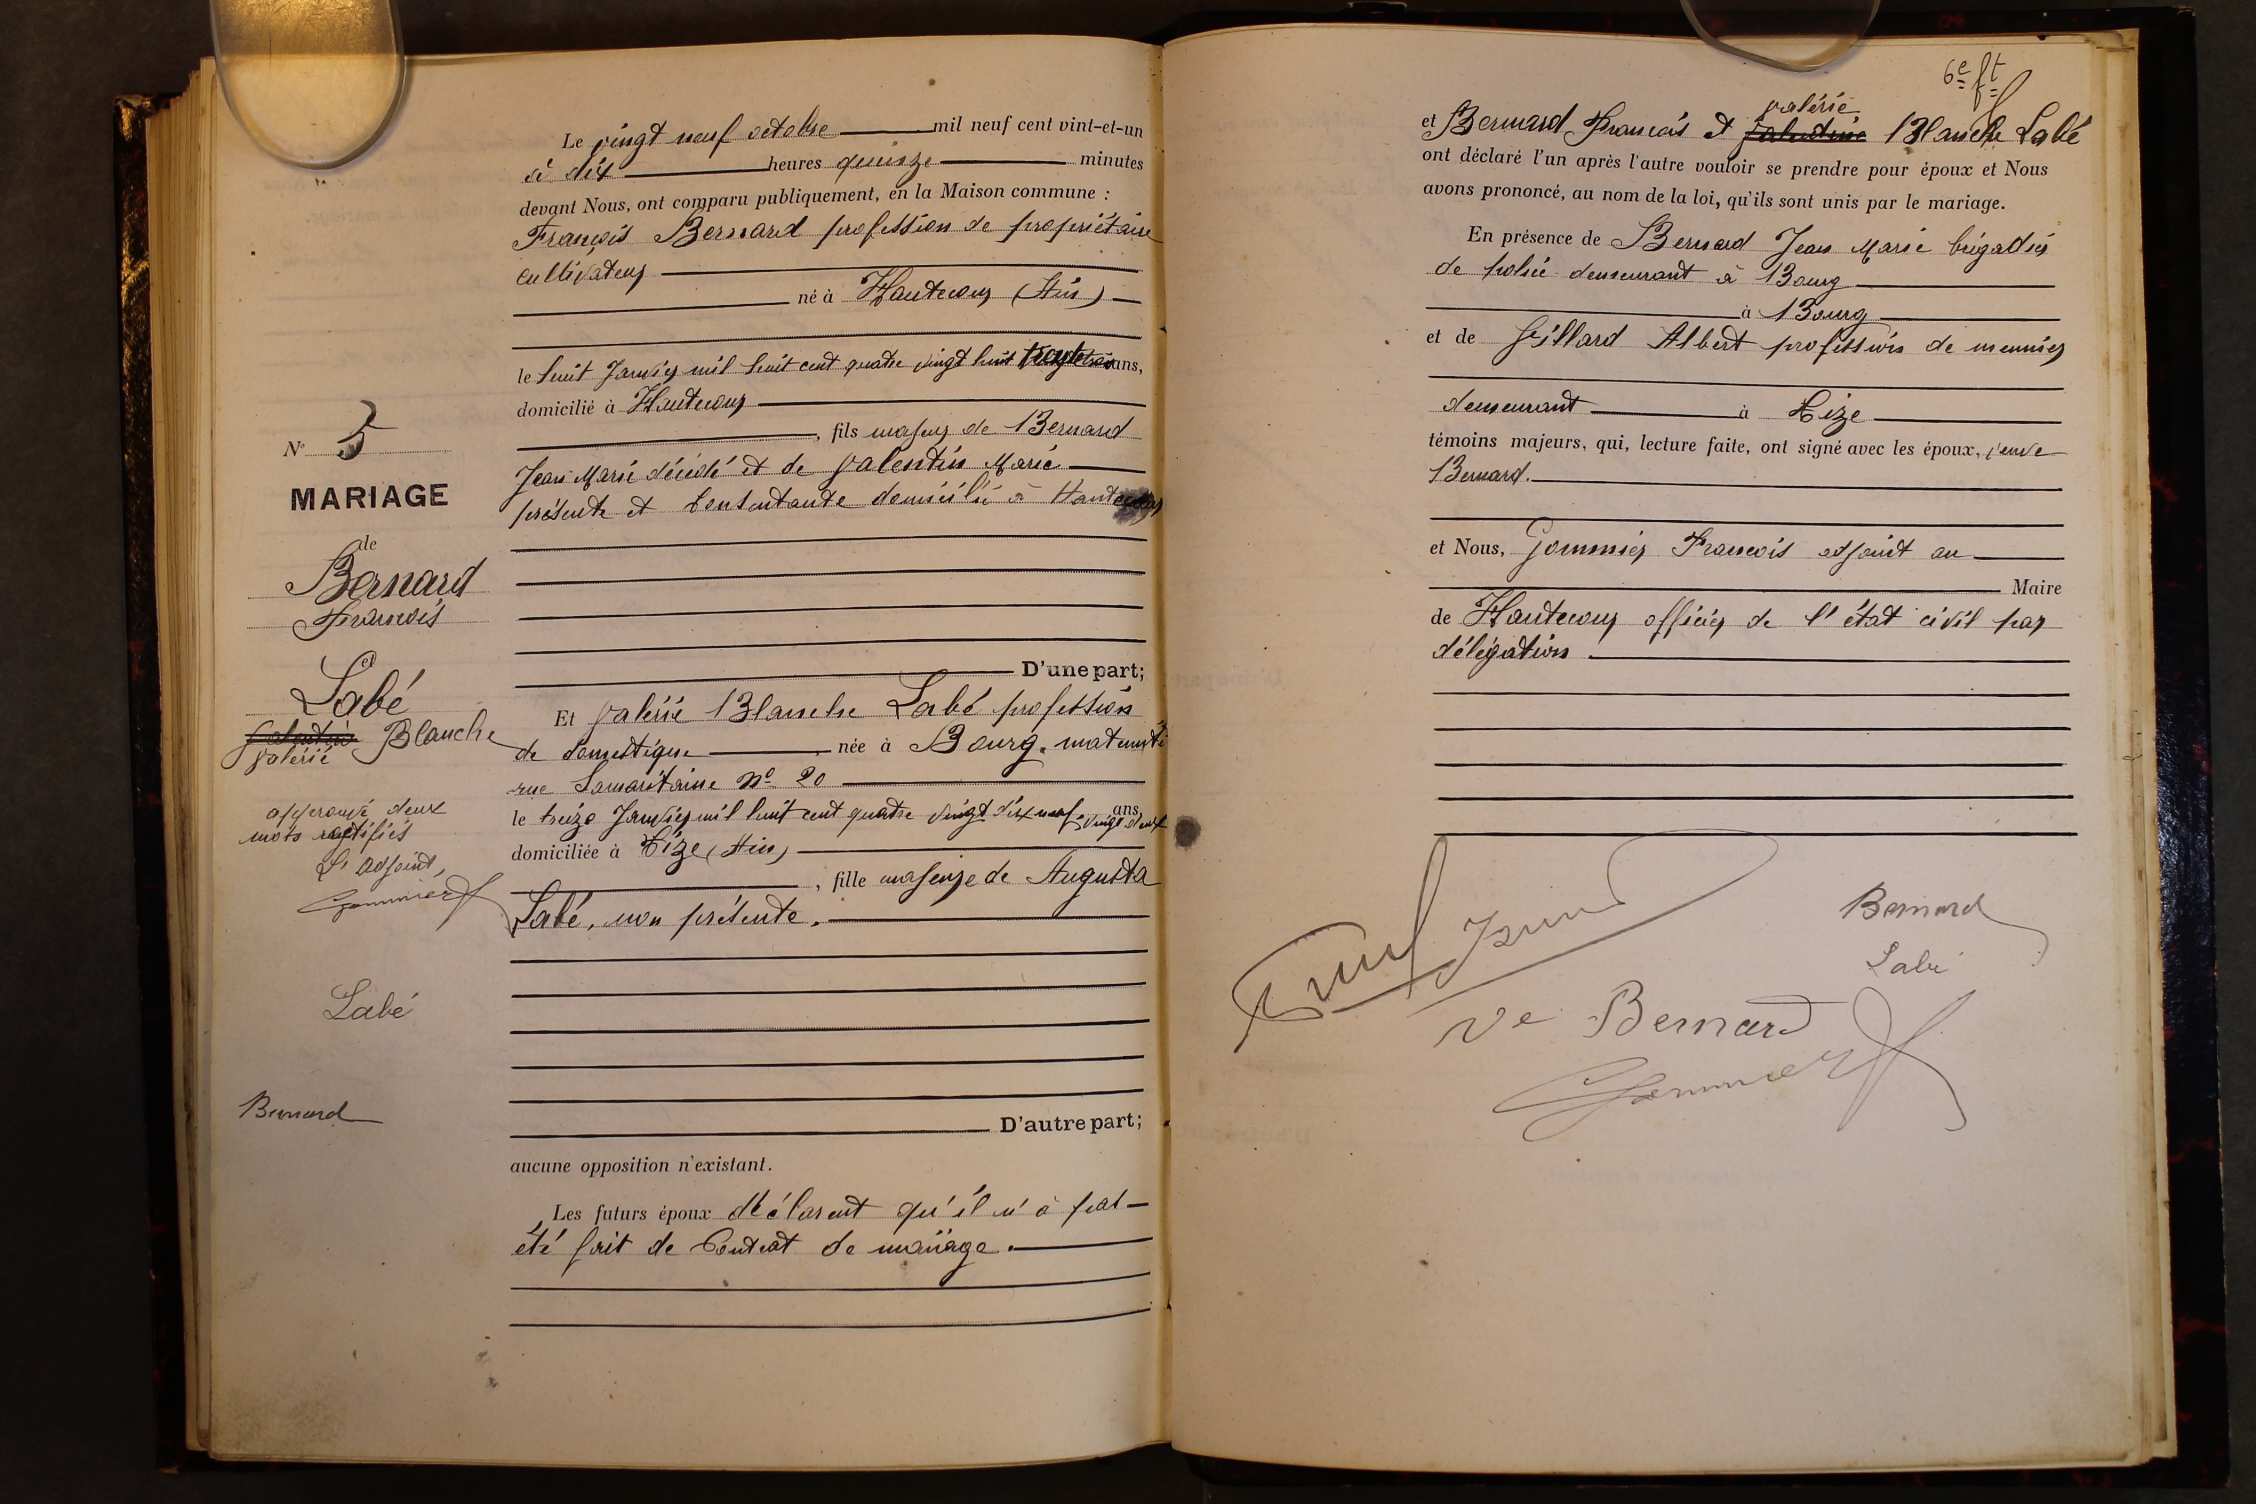 Le vingt neuf octobre mil neuf cent vint-et-un
à dix heures quinze minutes
devant Nous, ont comparu publiquement, en la Maison commune :
François Bernard profession de propriétaire
cultivateur
né à Hautecour (Ain)
le huit Janvier mil huit cent quatre vingt huit trente trois ans,
domicilié à Hautecour
, fils majeur de Bernard
Jean Marie décédé et de Valentin Marie
présente et consentante domicilié à Hautecour
D'une part;
Et Valérie Blanche Labé profession
de domestique née à Bourg. maternité
rue Samaritaine No 20
le treize Janvier mil huit cent quatre vingt dix neuf, vingt deux ans,
domiciliée à Cize (Ain)
, fille majeure de Augusta
Labé, non présente.
D'autre part;
aucune opposition n'existant.
Les futurs époux déclarent qu'il n'à pas
été fait de Contrat de mariage.
No 5
MARIAGE
de
Bernard
François
et
Labé
Valentine Blanche
Valérie
approuvé deux
mots rectifiés
L' adjoint,
Gommier
Labé
Bernard
6e ft
Valérie
et Bernard François et Valentine Blanche Labé
ont déclaré l'un après l'autre vouloir se prendre pour époux et Nous
avons prononcé, au nom de la loi, qu'ils sont unis par le mariage.
En présence de Bernard Jean Marie brigadier
de police demeurant à Bourg
à Bourg
et de Gillard Albert profession de meunier
demeurant à Cize
témoins majeurs, qui, lecture faite, ont signé avec les époux, veuve
Bernard.
et Nous, Gommier François adjoint au
Maire
de Hautecour officier de l'état civil par
délégation.
Bernard
Labé
Ve Bernard
Gommier